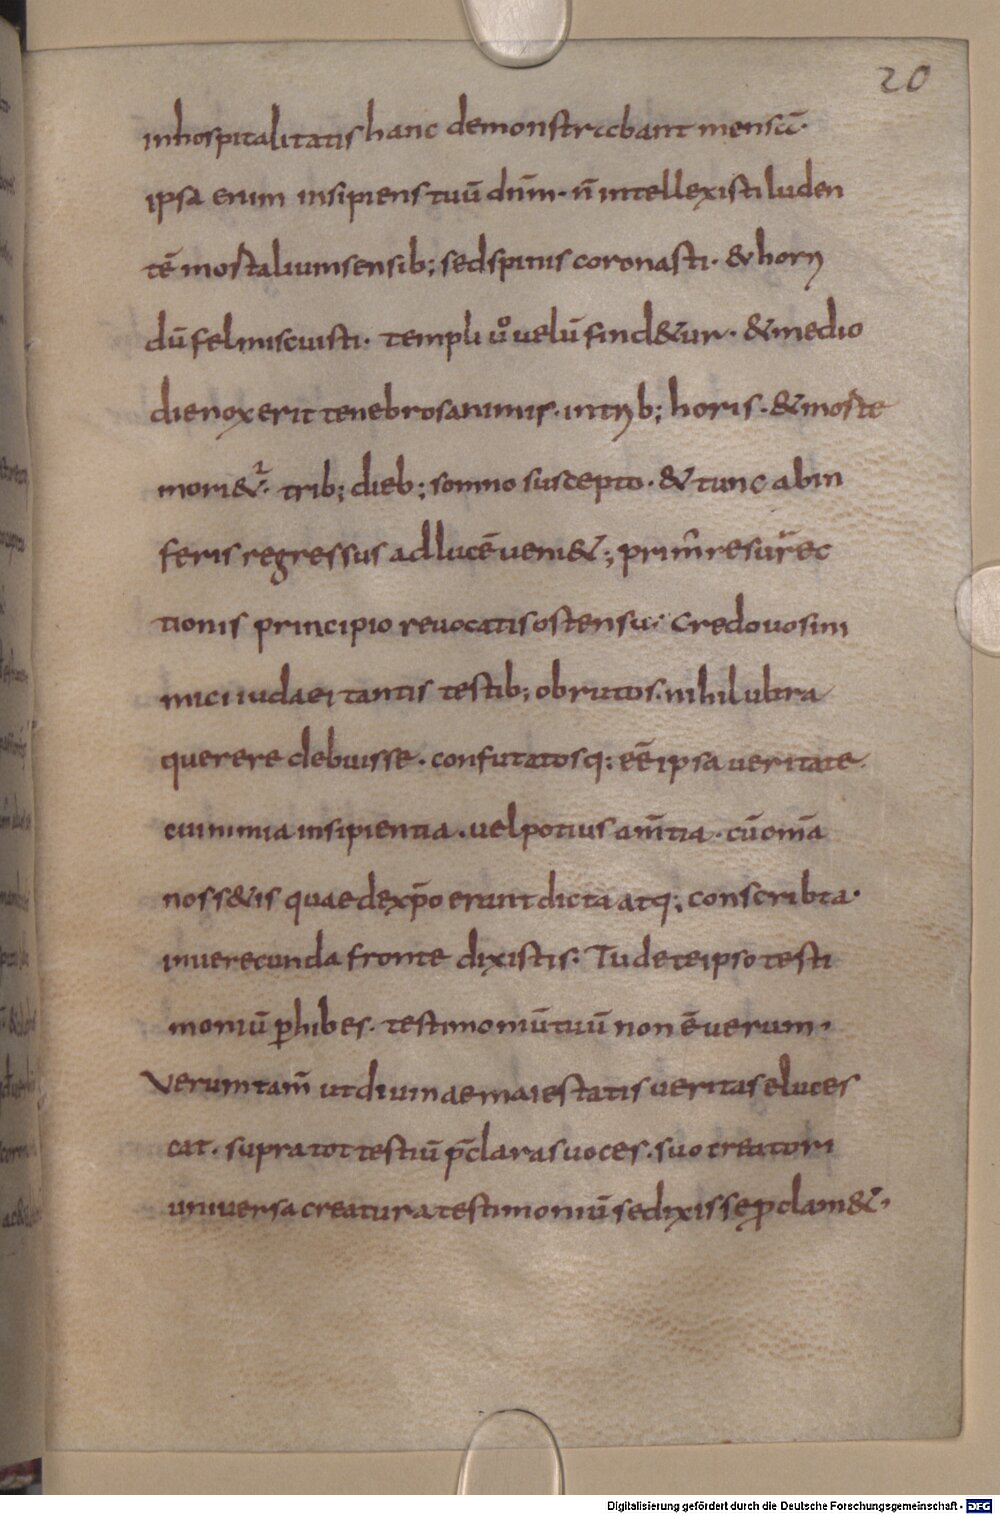 20
inhospitalitatis hanc demonstrabant mensā·
ipsa enim insipiens tuū dnm̄· n̄ intellexisti luden
tē mortalium sensib; sed spinis coronasti· & horri
dū fel miscuisti· templi ů velū find&ur· & medio
die nox erit tenebrosa nimis· in trib; horis· & morte
mori&ur· trib; dieb; somno suscepto· & tunc ab in
feris regressus ad lucē veni&; prim̄ resurrec
tionis principio revocatis ostensu· Credo vos ini
mici iudaei tantis testib; obrutos· nihil ultra
querere debuisse· confutatosq; eē ipsa veritate·
cui nimia insipientia· vel potius am̄tia· cū om̄a
noss&is quae de xp̄o erant dicta atq; conscribta·
inverecunda fronte dixistis· Tu de te ipso testi
moniū phibes· testimoniū tuū non ē verum·
Verumtam̄ ut divinae maiestatis veritas eluces
cat· supra tot testiū p̄claras voces· suo creatori
universa creatura testimoniū sedixisse pclam&·
Digitalisierung gefördert durch die Deutsche Forschungsgemeinschaft - DFG